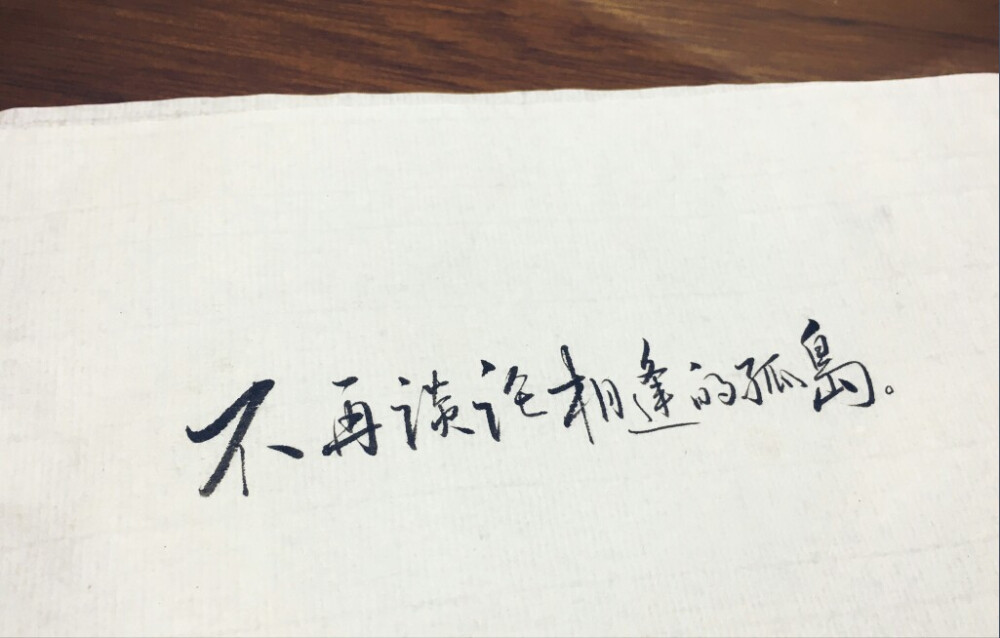 不再谈论相逢的孤岛。